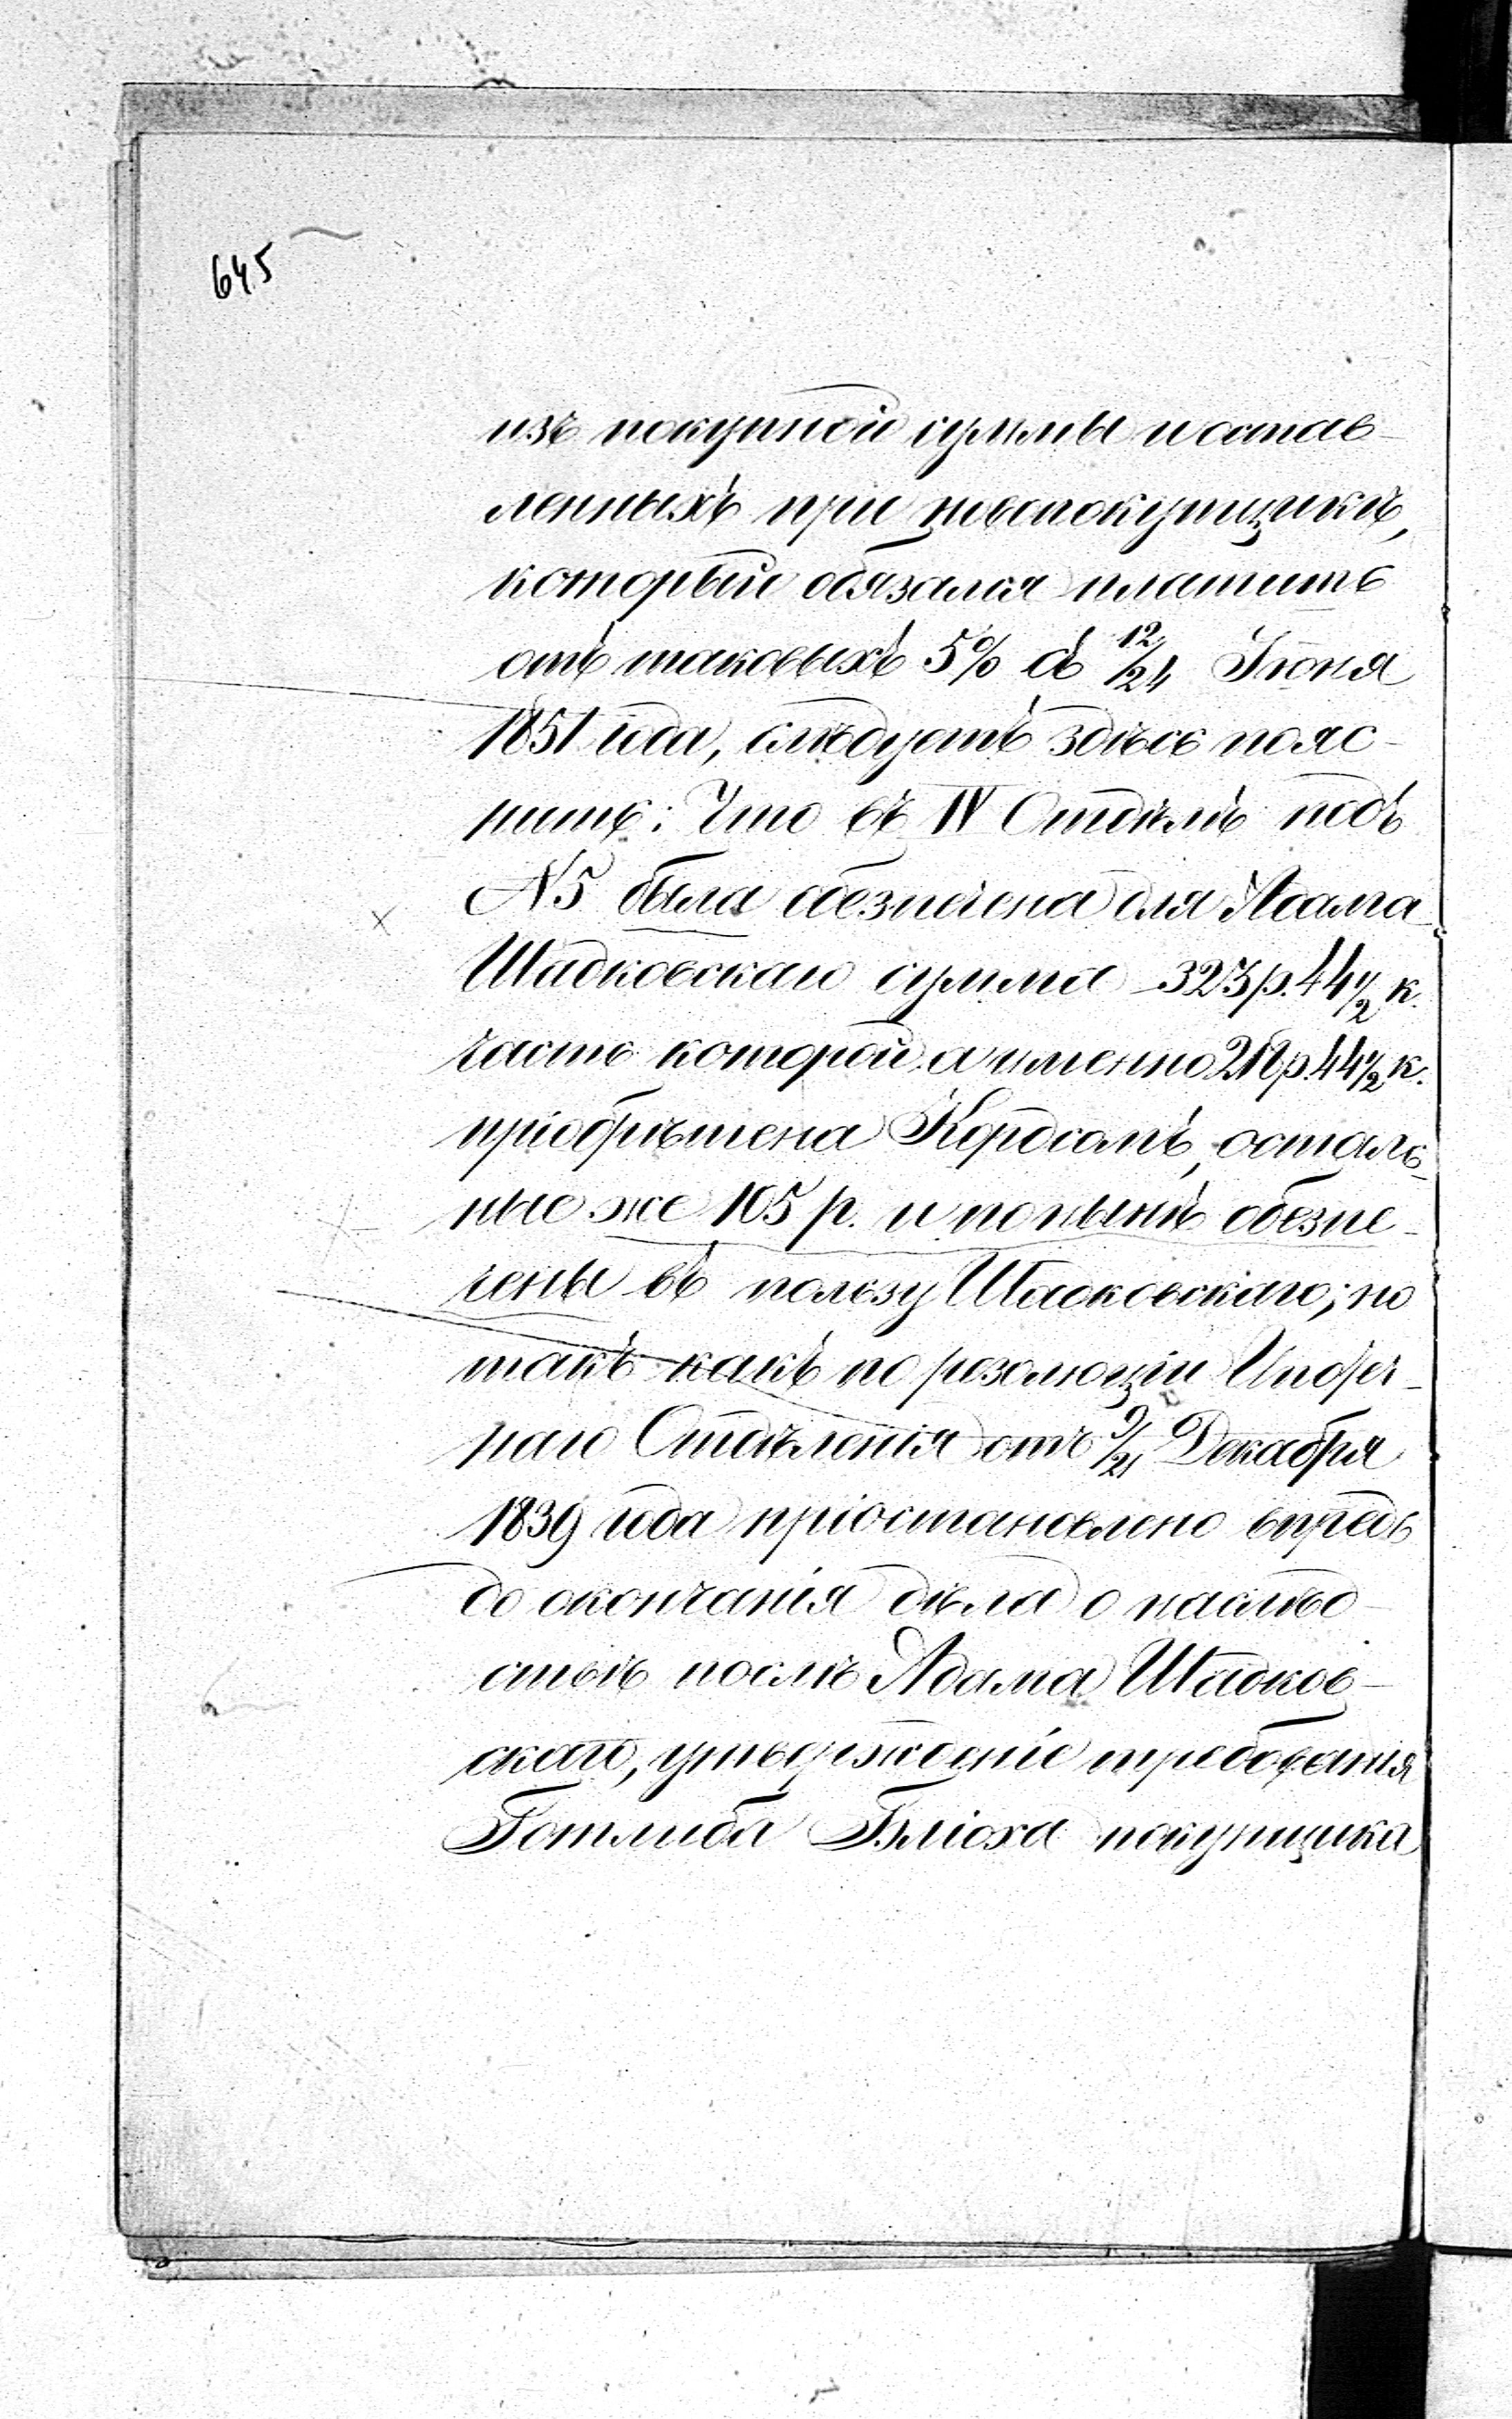 645
изъ покупной суммы и остав-
ленныхъ при новопокупщикѣ,
который обязался платить
отъ таковыхъ 5% съ 12/24 Іюня
1851 года, слѣдуетъ здѣсь пояс-
нить: Что въ IV Отдѣлѣ подъ
№5 была обезпечена для Адама
Шадковскаго сумма 323 р. 44 1/2 к.
часть которой а именно 218 р. 44 1/2 к.
пріобрѣтена Кордсомъ, осталь-
ные же 105 р. и понынѣ обезпе-
чены въ пользу Шадковскаго; но
такъ какъ по резолюціи Ипотеч-
наго Отдѣленія отъ 9/21 Декабря
1839 года пріостановлено впредь
до окончанія дѣла о наслѣд-
ствѣ послѣ Адама Шадков-
скаго, утвержденіе требованія
Готлиба Бліоха покупщика